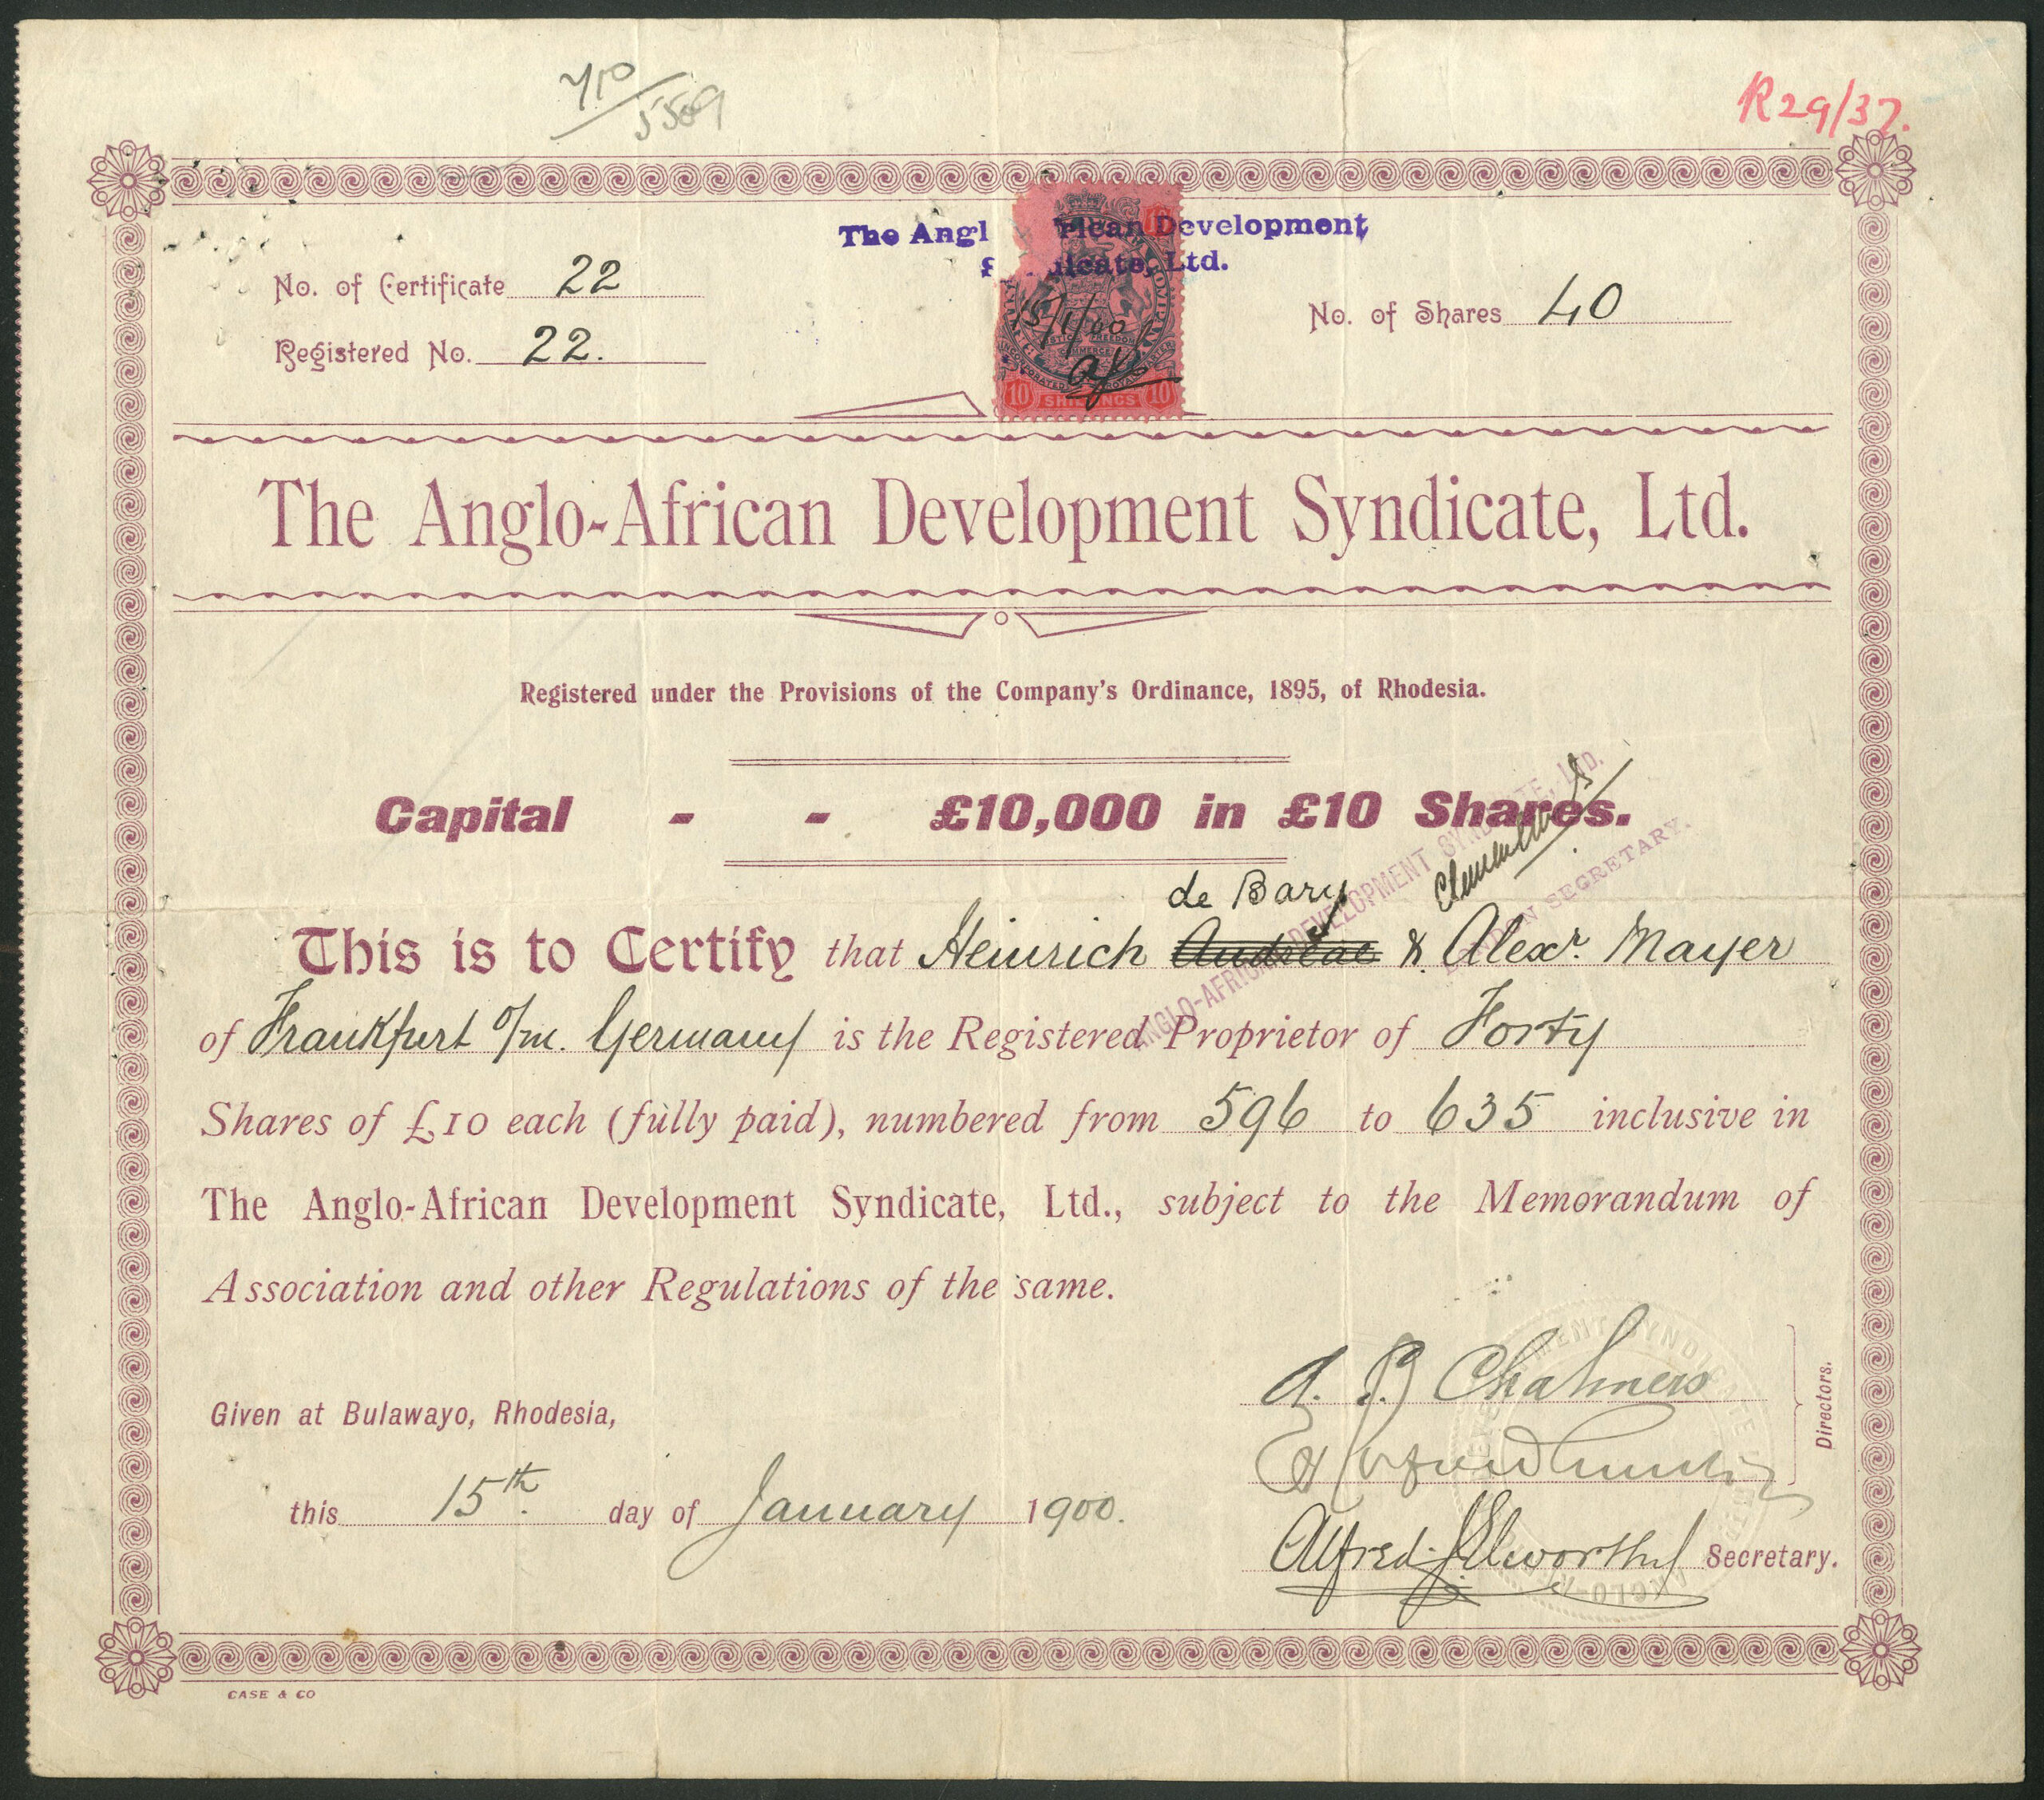 R29/37.
The Angl rican Development
dicate, Ltd.
No. of Certificate 22
No. of Shares 40
Registered No. 22.
15/1/00
JUSTICE FREEDOM
COMMERCE
INCORPORATED ROYAL CHARTER
10 SHILLINGS 10
The Anglo-African Development Syndicate, Ltd.
Registered under the Provisions of the Company's Ordinance, 1895, of Rhodesia.
Capital - - £10,000 in £10 Shares.
ANGLO-AFRICAN DEVELOPMENT SYNDICATE, LTD.
LONDON SECRETARY.
de Bary
This is to Certify that Heinrich Andreae & Alexr. Mayer
of Frankfurt o/m. Germany is the Registered Proprietor of Forty
Shares of £10 each (fully paid), numbered from 596 to 635 inclusive in
The Anglo-African Development Syndicate, Ltd., subject to the Memorandum of
Association and other Regulations of the same.
A. P. Chalmers
Directors.
Given at Bulawayo, Rhodesia,
this 15th day of January 1900.
Alfred J. Elworthy Secretary.
CASE & CO